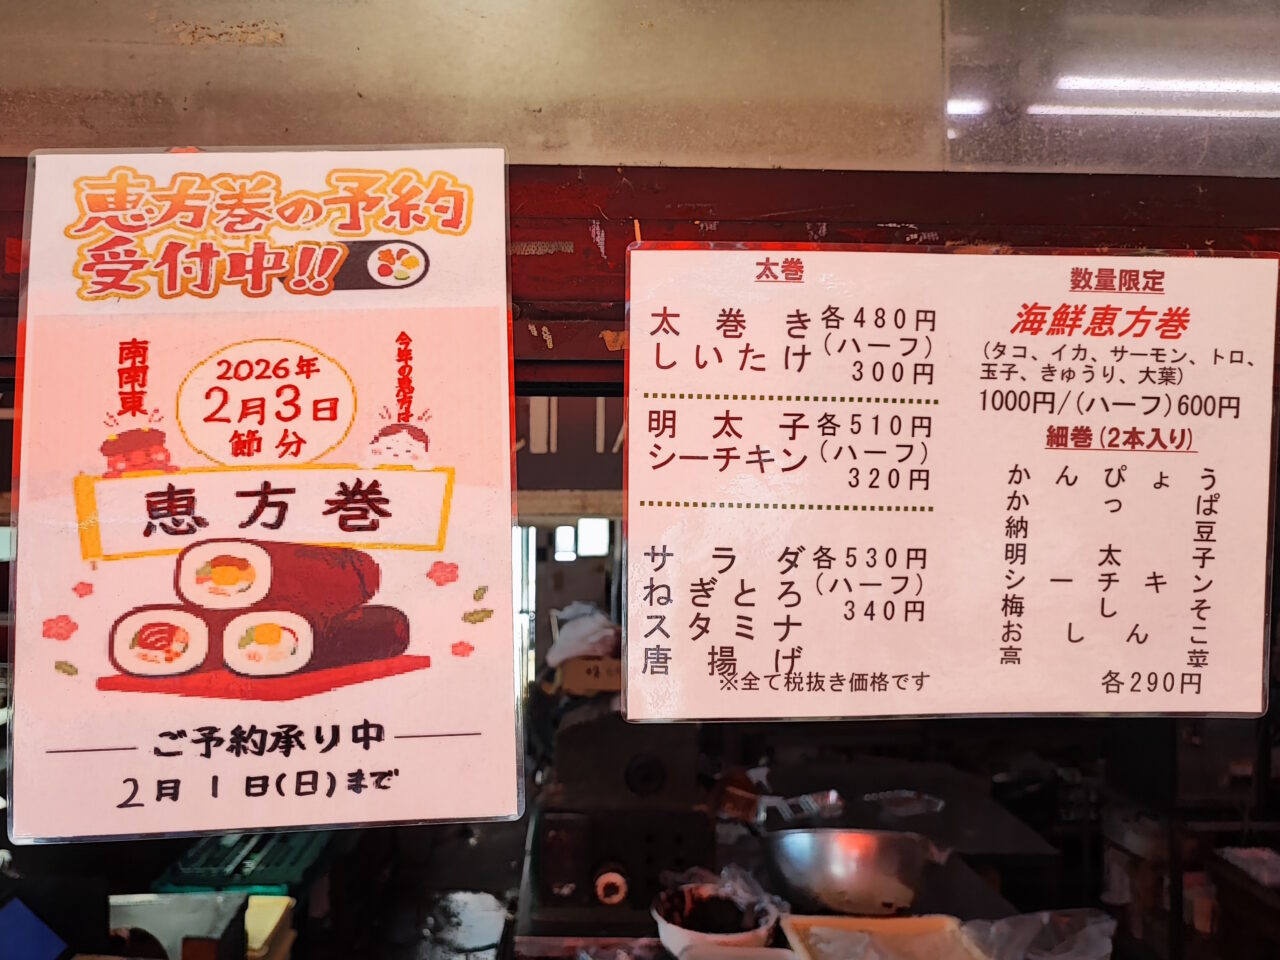 恵方巻の予約
受付中!!
今年の恵方は
南南東
2026年
2月3日
節分
恵方巻
ご予約承り中
2月1日(日)まで
太巻
太巻き 各480円
しいたけ (ハーフ)
300円
明太子 各510円
シーチキン (ハーフ)
320円
サラダ 各530円
ねぎとろ (ハーフ)
スタミナ 340円
唐揚げ
※全て税抜き価格です
数量限定
海鮮恵方巻
(タコ、イカ、サーモン、トロ、
玉子、きゅうり、大葉)
1000円/(ハーフ)600円
細巻(2本入り)
かんぴょう
かっぱ
納豆
明太子
シーチキン
梅しそ
おしんこ
高菜
各290円